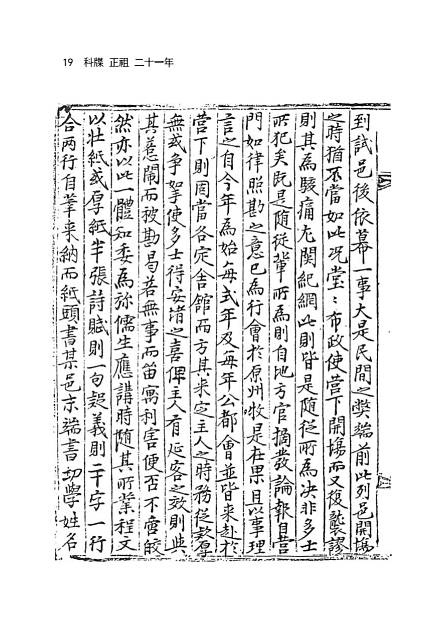 19 科牒 正祖 二十一年
到試邑後依幕一事大是民間之弊端前此列邑開場
之時猶不當如此况堂〻布政使營下開場而又復襲謬
則其爲駭痛尤關紀綱此則皆是隨從所爲决非多士
所犯矣旣是隨從輩所爲則自地方官摘發論報自營
門如律照勘之意已爲行會於原州牧是在果且以事理
言之自今年爲始每式年及每年公都會並皆來赴於
營下則罔當各定舍館而方其來定主人之時務從敦厚
無或爭拏使多士得安堵之喜俾主人有延客之效則與
其惹鬧而被勘曷若無事而留寓利害便否不啻皎
然亦以此一體知委爲旀儒生應講時隨其所業程文
以壯紙或厚紙半張詩賦則一句疑義則二十字一行
合兩行自筆來納而紙頭書某邑末端書幼學姓名